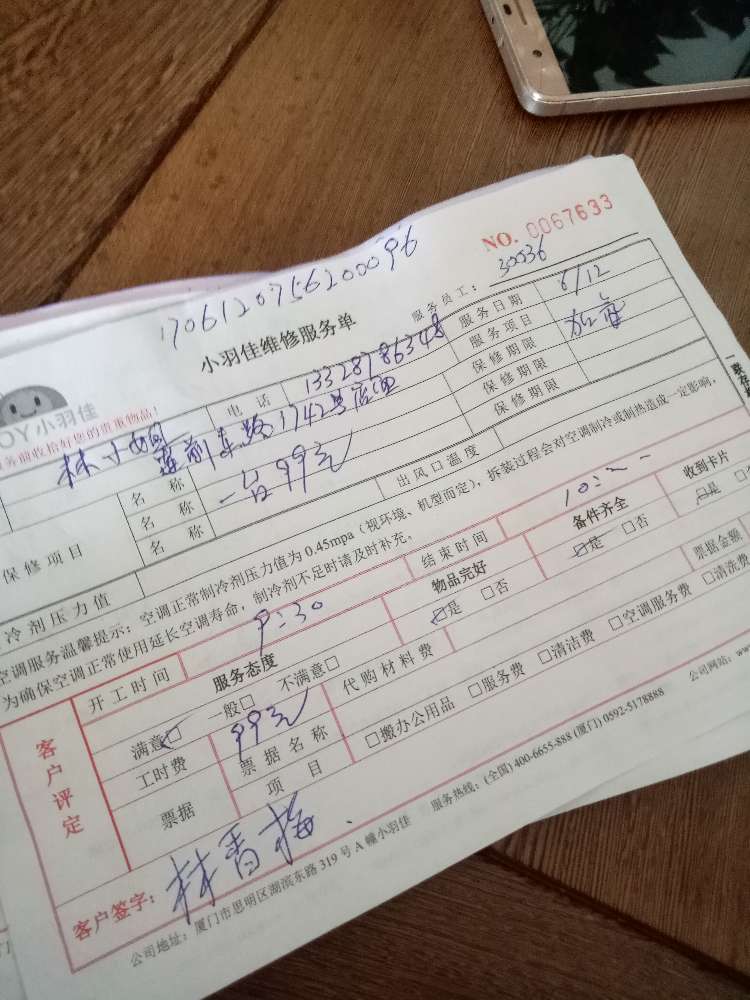 NO. 0067633
1706120756200096
服务员工：30036
小羽佳维修服务单
OY小羽佳
务前收拾好您的贵重物品！
电话 13328786348 服务日期 6/12
林小姐 1742号店面 服务项目 加雪
名称 一台99元 保修期限
名称 保修期限
保修项目 名称 出风口温度
冷剂压力值
空调服务温馨提示：空调正常制冷剂压力值为 0.45mpa（视环境、机型而定），拆装过程会对空调制冷或制热造成一定影响，
为确保空调正常使用延长空调寿命，制冷剂不足时请及时补充。
开工时间 9:30 结束时间 10:
服务态度 物品完好 备件齐全 收到卡片
满意□ 一般□ 不满意□ □是 □否 □是 □否 □是
工时费 99元 代购材料费
票据 票据名称 票据金额
项目 □搬办公用品 □服务费 □清洁费 □空调服务费 □清洗费
客户评定
客户签字：林香梅
公司地址：厦门市思明区湖滨东路 319 号 A 幢小羽佳 服务热线：(全国) 400-6655-888 (厦门) 0592-5178888 公司网站：www